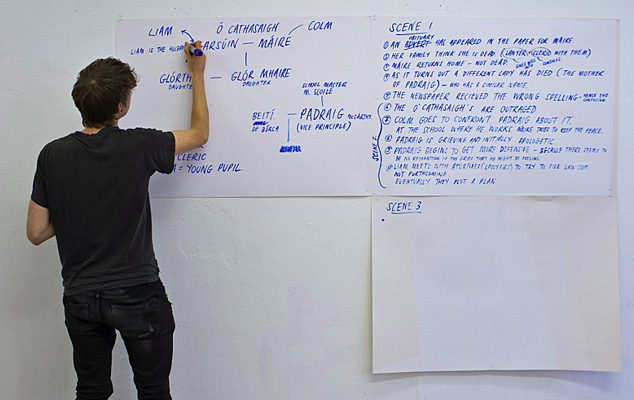 LIAM
Ó CATHASAIGH
COLM
LIAM IS THE
ARSÚIN — MÁIRE
GLÓRTH — GLÓR MHAIRE
DAUGHTER
DAUGHTER
SCHOOL MASTER
M. SCOILE
BEITÍ — PADRAIG McCARTHY
DE BÚRCA
(VICE PRINCIPLE)
CLERIC
= YOUNG PUPIL.
SCENE 1
OBITUARY
① AN ADVERT HAS APPEARED IN THE PAPER FOR MÁIRE.
② HER FAMILY THINK SHE IS DEAD (LAWYER + CLERIC WITH THEM)
③ MÁIRE RETURNS HOME - NOT DEAD
④ AS IT TURNS OUT A DIFFERENT LADY HAS DIED (THE MOTHER
OF PADRAIG) - WHO HAS A SIMILAR NAME.
⑤ THE NEWSPAPER RECIEVED THE WRONG SPELLING - HENCE THE
CONFUSION
⑥ THE O'CATHASAIGH'S ARE OUTRAGED
⑦ COLM GOES TO CONFRONT PADRAIG ABOUT IT.
AT THE SCHOOL WHERE HE WORKS. MAIRE TRIES TO KEEP THE PEACE.
SCENE 2
⑧ PADRAIG IS GRIEVING AND INITIALLY APOLOGETIC
⑨ PADRAIG BEGINS TO GET MORE DEFENSIVE - BECAUSE THERE SEEMS TO
BE NO RECOGNITION OF THE GRIEF THAT HE MIGHT BE FEELING.
⑩ LIAM MEETS WITH (LAWYERS) TO TRY TO FILE LAW SUIT
NOT FORTHCOMING
EVENTUALLY THEY PLOT A PLAN
SCENE 3